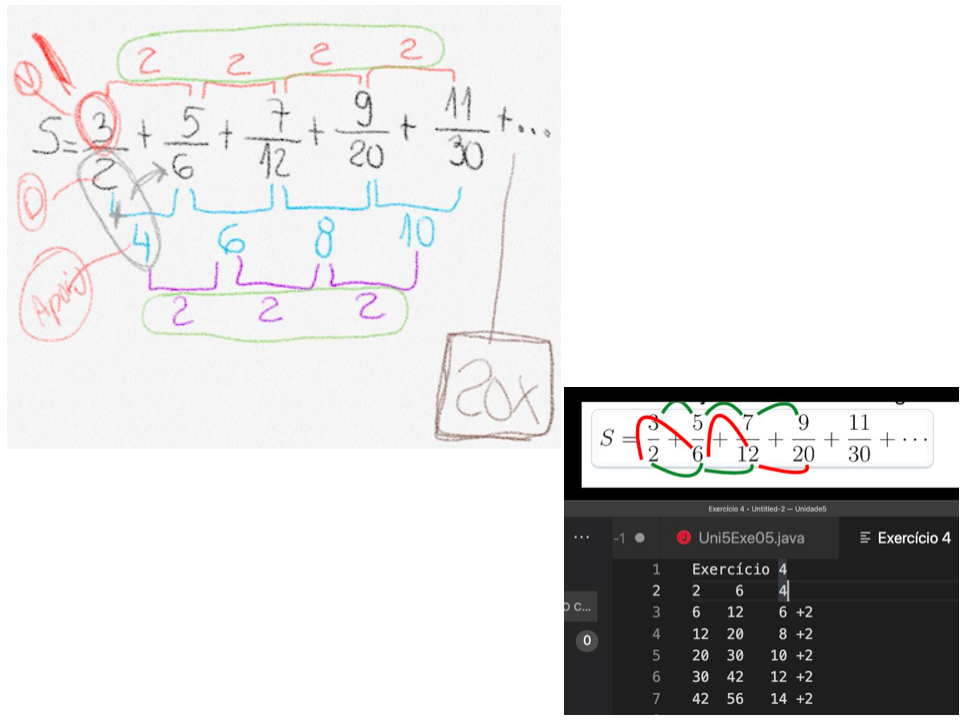 2 2 2 2
N
S= 3/2 + 5/6 + 7/12 + 9/20 + 11/30 +...
D
4 6 8 10
Apoio
2 2 2
20x
S = 3/2 + 5/6 + 7/12 + 9/20 + 11/30 + ⋯
Exercício 4 • Untitled-2 — Unidade5
... -1 ● J Uni5Exe05.java Exercício 4
1 Exercício 4
2 2 6 4
3 6 12 6 +2
4 12 20 8 +2
5 20 30 10 +2
6 30 42 12 +2
7 42 56 14 +2
o c...
0